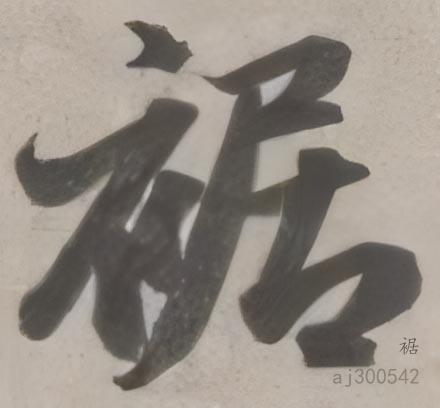 裾
裾
aj300542